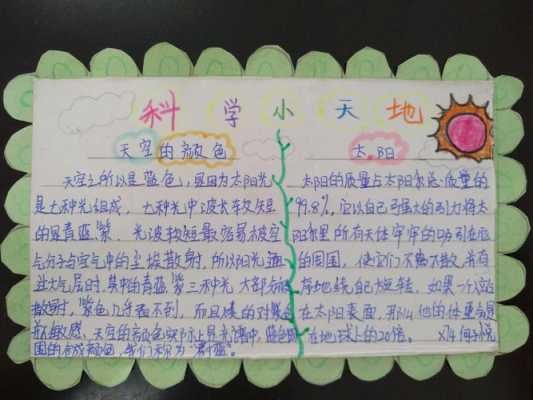 科学小天地
天空的颜色
天空之所以是蓝色,是因为太阳光
是七种光组成,七种光中波长较短
的是青蓝紫,光波较短最容易被空
气分子与空气中的尘埃散射,所以阳光
过大气层时,其中的青、蓝、紫三种光大部分
散射,紫色几乎看不到,而且
敏感,天空的颜色实际上是光谱中蓝色
围的合成颜色,我们称为"蔚蓝"。
太阳
太阳的质量占太阳系总质量的
99.8%,它以自己强大的引力将太
阳系里所有天体牢牢的吸引在
的周围,使它们不离不散,井有
地绕自己旋转,如果一个人站
在太阳表面,那么他的体重是
在地球上的20倍。